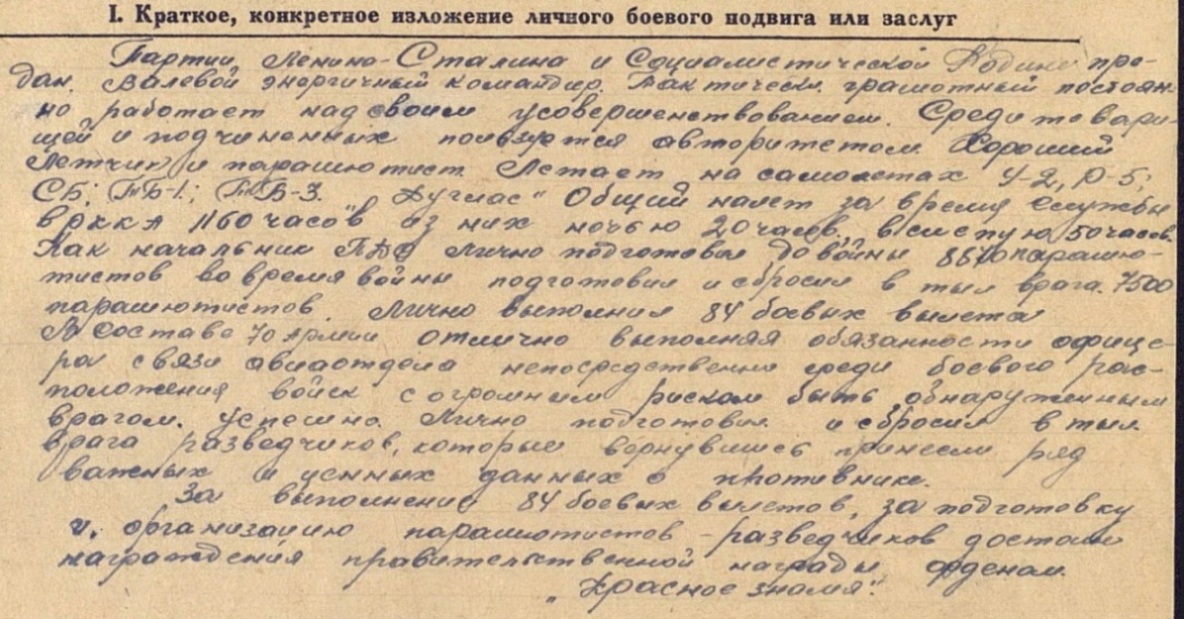 I. Краткое, конкретное изложение личного боевого подвига или заслуг
Партии Ленино-Сталина и Социалистической Родине пре-
дан. Валевой энергичный командир. Тактически грамотный постоян-
но работает над своим усовершенствованием. Среди товари-
щей и подчиненных пользуется авторитетом. Хороший
Летчик и парашютист. Летает на самолетах У-2, Р-5;
СБ; ТБ-1; ТБ-3. "Дуглас" Общий налет за время службы
в РККА 1160 часов из них ночью 20 часов. в слепую 50 часов.
Как начальник ПДС лично подготовил до войны парашю-
тистов во время войны подготовил и сбросил в тыл врага 7500
парашютистов. Лично выполнил 84 боевых вылета
В составе 70 Армии отлично выполняя обязанности офице-
ра связи авиаотдела непосредственно среди боевого рас-
положения войск с огромным риском быть обнаруженным
врагом. успешно. Лично подготовил и сбросил в тыл
врага разведчиков, которые вернувшись принесли ряд
важных и ценных данных о противнике.
За выполнение 84 боевых вылетов, за подготовку
и. организацию парашютистов-разведчиков достоин
награждения правительственной награды орденом.
"Красное знамя".